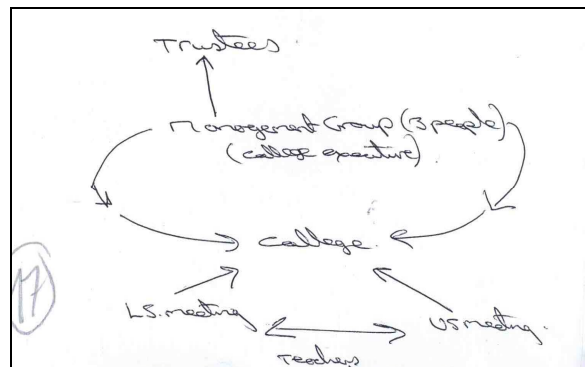 Trustees
Management Group (3 people)
(college executive)
College.
L.S. meeting
US meeting.
Teachers
17